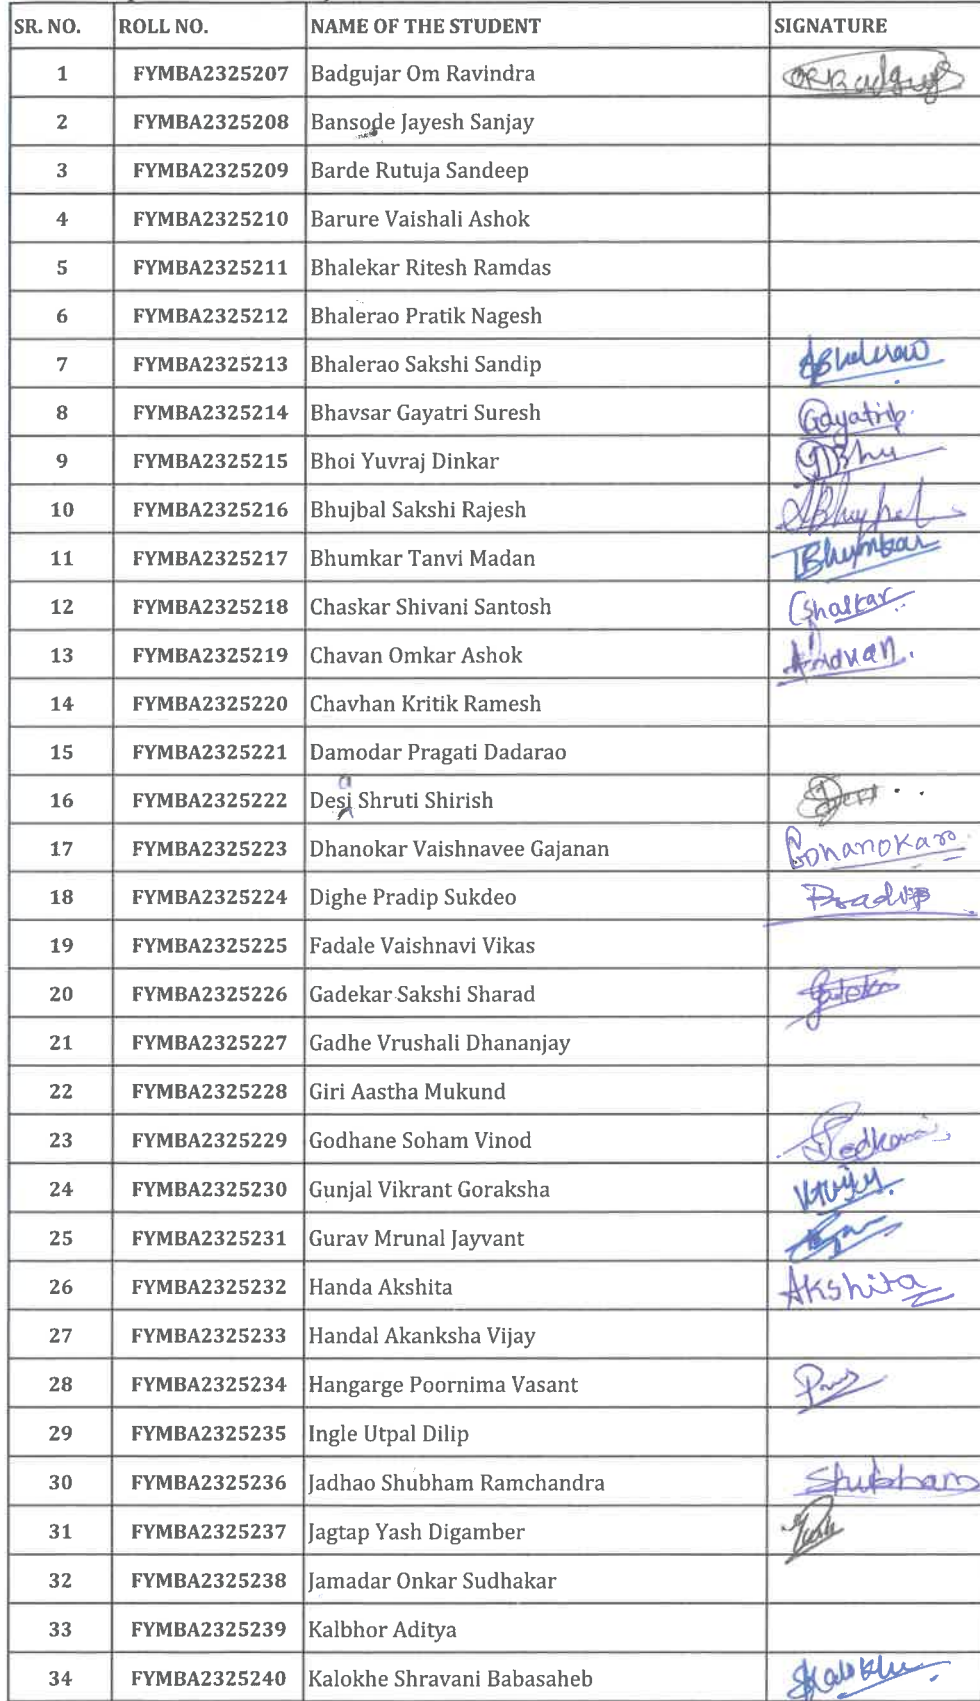 SR. NO. ROLL NO. NAME OF THE STUDENT SIGNATURE
1 FYMBA2325207 Badgujar Om Ravindra
2 FYMBA2325208 Bansode Jayesh Sanjay
3 FYMBA2325209 Barde Rutuja Sandeep
4 FYMBA2325210 Barure Vaishali Ashok
5 FYMBA2325211 Bhalekar Ritesh Ramdas
6 FYMBA2325212 Bhalerao Pratik Nagesh
7 FYMBA2325213 Bhalerao Sakshi Sandip
8 FYMBA2325214 Bhavsar Gayatri Suresh
9 FYMBA2325215 Bhoi Yuvraj Dinkar
10 FYMBA2325216 Bhujbal Sakshi Rajesh
11 FYMBA2325217 Bhumkar Tanvi Madan TBhumkar
12 FYMBA2325218 Chaskar Shivani Santosh
13 FYMBA2325219 Chavan Omkar Ashok
14 FYMBA2325220 Chavhan Kritik Ramesh
15 FYMBA2325221 Damodar Pragati Dadarao
16 FYMBA2325222 Desi Shruti Shirish
17 FYMBA2325223 Dhanokar Vaishnavee Gajanan
18 FYMBA2325224 Dighe Pradip Sukdeo Pradip
19 FYMBA2325225 Fadale Vaishnavi Vikas
20 FYMBA2325226 Gadekar Sakshi Sharad
21 FYMBA2325227 Gadhe Vrushali Dhananjay
22 FYMBA2325228 Giri Aastha Mukund
23 FYMBA2325229 Godhane Soham Vinod
24 FYMBA2325230 Gunjal Vikrant Goraksha
25 FYMBA2325231 Gurav Mrunal Jayvant
26 FYMBA2325232 Handa Akshita Akshita
27 FYMBA2325233 Handal Akanksha Vijay
28 FYMBA2325234 Hangarge Poornima Vasant
29 FYMBA2325235 Ingle Utpal Dilip
30 FYMBA2325236 Jadhao Shubham Ramchandra Shubham
31 FYMBA2325237 Jagtap Yash Digamber
32 FYMBA2325238 Jamadar Onkar Sudhakar
33 FYMBA2325239 Kalbhor Aditya
34 FYMBA2325240 Kalokhe Shravani Babasaheb